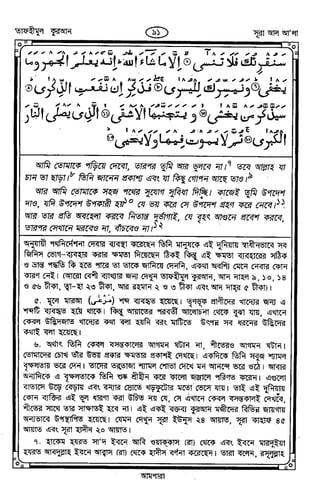 তাফহীমুল কুরআন
৯১
সূরা আল আ'লা
سَنُقْرِئُكَ فَلَا تَنْسٰى ۙ اِلَّا مَا شَآءَ اللّٰهُ ؕ اِنَّهٗ يَعْلَمُ الْجَهْرَ وَمَا
يَخْفٰى ؕ وَنُيَسِّرُكَ لِلْيُسْرٰى ۚۖ فَذَكِّرْ اِنْ نَّفَعَتِ الذِّكْرٰى ؕ
سَيَذَّكَّرُ مَنْ يَّخْشٰى ۙ وَيَتَجَنَّبُهَا الْاَشْقَى ۙ الَّذِيْ يَصْلَى النَّارَ
الْكُبْرٰى ۚ ثُمَّ لَا يَمُوْتُ فِيْهَا وَلَا يَحْيٰى ؕ
আমি তোমাকে পড়িয়ে দেবো, তারপর তুমি আর ভুলবে না।৭ তবে আল্লাহ যা
চান তা ছাড়া।৮ তিনি জানেন প্রকাশ্য এবং যা কিছু গোপন আছে তাও।৯
আর আমি তোমাকে সহজ পথের সুযোগ সুবিধা দিচ্ছি। কাজেই তুমি উপদেশ
দাও, যদি উপদেশ উপকারী হয়১০ যে ভয় করে সে উপদেশ গ্রহণ করে নেবে।১১
আর তার প্রতি অবহেলা করবে নিতান্ত দুর্ভাগাই, যে বৃহৎ আগুনে প্রবেশ করবে,
তারপর সেখানে মরবেও না, বাঁচবেও না।১২
অনুযায়ী পথনির্দেশনা দেবার ব্যবস্থা করেছেন তিনি মানুষকে এই দুনিয়ায় স্বাধীনভাবে সব
জিনিস ভোগ-ব্যবহার করার ক্ষমতা দিয়েছেন ঠিকই কিন্তু এই ক্ষমতা ব্যবহারের সঠিক
ও ভ্রান্ত পদ্ধতি কি হতে পারে তা তাকে জানিয়ে দেননি, একথা অবশ্যি মেনে নেবার কোন
কারণ নেই। (আরো বেশী ব্যাখ্যার জন্য দেখুন তাফহীমুল কুরআন, আন নাহল ৯, ১০, ১৪
ও ৫৬ টীকা, ত্বা-হা ২৩ টীকা, আর রহমান ২ ও ৩ টীকা এবং আদ দাহর ৫ টীকা)।
৫. মূলে মারআ (مَرْعٰى) শব্দ ব্যবহৃত হয়েছে। তৃণভুক প্রাণীদের খাদ্যের জন্য এ
শব্দটি ব্যবহৃত হয়ে থাকে। কিন্তু আয়াতের পরবর্তী আলোচনা থেকে বুঝা যায়, এখানে
কেবল উদ্ভিদজাত খাদ্যের কথা বলা হয়নি বরং মাটিতে উৎপন্ন সব ধরনের উদ্ভিদের
কথাই বলা হয়েছে।
৬. অর্থাৎ তিনি কেবল বসন্তকালের আগমন ঘটান না, শীতেরও আগমন ঘটান।
তোমাদের চোখ তাঁর উভয় প্রকার ক্ষমতার প্রকাশই দেখছে। একদিকে তিনি সবুজ শ্যামল
বৃক্ষলতায় ভরে দেন। তাদের তরতাজা শ্যামল শোভা দেখে মন আনন্দে ভরে ওঠে। আবার
অন্যদিকে এ বৃক্ষলতাকে তিনি শুষ্ক শ্রীহীন করে কালো জঞ্জালে পরিণত করেন। এগুলো
বাতাসে উড়ে বেড়ায় এবং বন্যার স্রোতে খড়কুটোর মতো ভেসে যায়। তাই এই দুনিয়ায়
কোন ব্যক্তির এই ভুল ধারণা করা উচিত নয় যে, সে এখানে কেবল বসন্তকালই দেখবে,
শীতের সাথে তার সাক্ষাতই হবে না। এই একই বক্তব্য কুরআন মজীদের বিভিন্ন জায়গায়
অন্যভাবে উপস্থাপিত হয়েছে। যেমন দেখুন সূরা ইউনুস ২৪ আয়াত, সূরা কাহাফ ৪৫
আয়াত এবং সূরা হাদীদ ২০ আয়াত।
৭. হাকেম হযরত সা'দ ইবনে আবি ওয়াক্কাস (রা) থেকে এবং ইবনে মারদুইয়া
হযরত আবদুল্লাহ ইবনে আব্বাস (রা) থেকে হাদীস বর্ণনা করেছেন। তারা বলেন, রসূলুল্লাহ
আমপারা